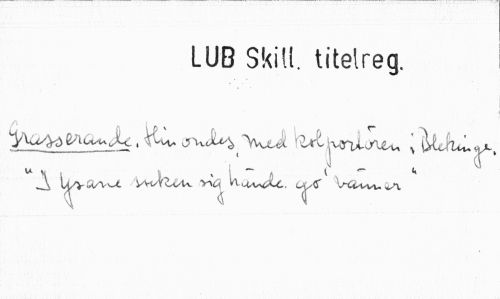 LUB Skill. titelreg.
Grasserande, Hin ondes, med kolportören i Blekinge.
"I lysare veken sig hände go' vänner"